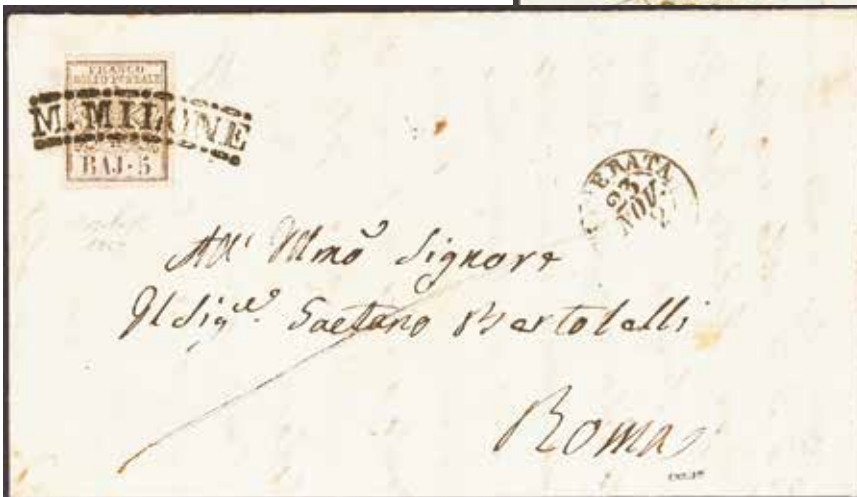 FRANCO
BOLLO POSTALE
M. MILONE
BAJ. 5
ERATA
23
NOV.
All' Illmo Signore
Il Sigre. Gaetano Bartolelli
Roma